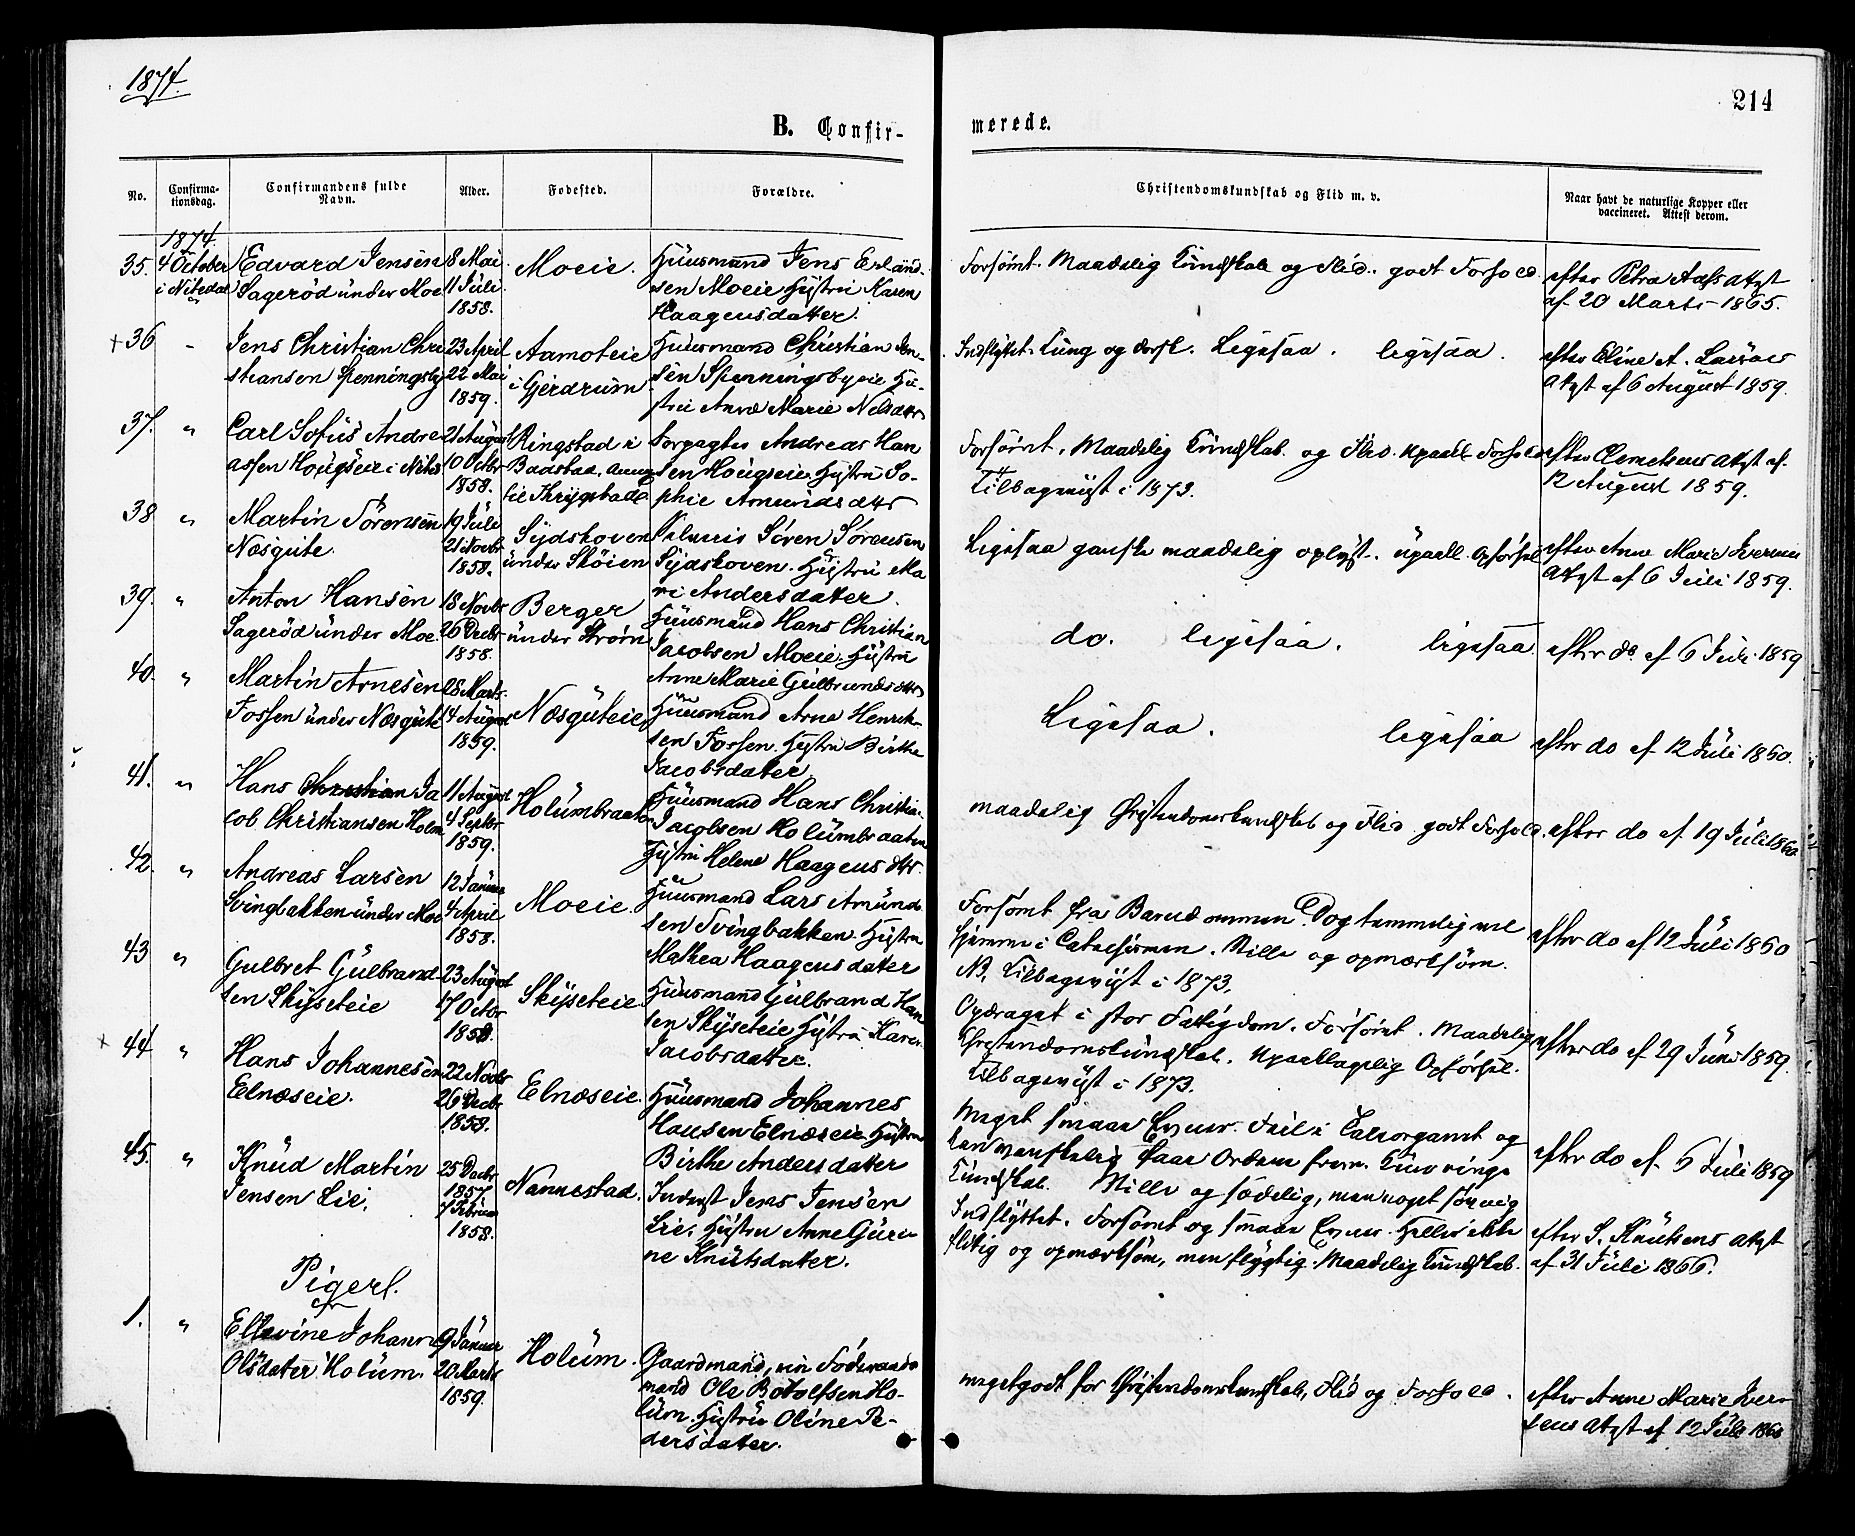 1874.
214
B. Confir-
merede.
No.
Confirma-
tionsdag.
Confirmandens fulde
Navn.
Alder.
Fødested.
Forældre.
Christendomskundskab og Flid m. v.
Naar havt de naturlige Kopper eller
vaccineret. Attest derom.
1874.
35. 4 October
i Nitedal
Edvard Jensen
Sagerød under Moe
8 Mai
11 Juli
1858.
Moeie.
Huusmand Jens Erland-
sen Moeie Hustru Karen
Haagensdatter.
Forsømt. Maadelig Kundskab og Flid. godt Forhold.
efter Petra Aass Attest
af 20 Marts 1865.
+36 "
Jens Christian Chri
stiansen Spenningsby
23 April
22 Mai
1859.
Aamoteie
i Gjerdrum
Huusmand Christian Jen-
sen Spenningsbyeie Hu-
stru Anne Marie Nilsdttr
Indflyttet. Tung og dorsk. Ligesaa. ligesaa.
efter Eline A. Larsens
Attest af 6 August 1859.
37. "
Carl Sofus Andre
assen Hougseie i Nites
21 August
10 Octbr
1858.
Ringstad i
Baastad.
eie Thrygstad
Forpagter Andreas Han
sen Hougseie. Hustru So-
phie Amundsdttr
Forsømt. Maadelig Kundskab og Flid. upaakl. Forhold
Tilbagevist i 1873.
efter Clemetsens Attest af
12 August 1859.
38 "
Martin Sørensen
Næsgute.
19 Juli
21 Novbr
1858.
Sydskoven
under Skøien
Søren Sørensen
Sydskoven. Hustru Ma
ri Andersdatter.
Ligesaa ganske maadelig oplyst. upaakl. Opførsel
efter Anne Marie Iversens
Attest af 6 Juli 1859.
39. "
Anton Hansen
Sagerød under Moe.
18 Novbr
26 Decbr
1858.
Berger
under Strøm
Huusmand Hans Christian
Jacobsen Moeie. Hustru
Anne Marie Gulbrandsdttr
do. ligesaa. ligesaa
efter do af 6 Juli 1859
40. "
Martin Arnesen
Fossen under Næsgute
28 Marts
14 August
1859.
Næsguteie
Huusmand Arne Henrik-
sen Fossen. Hustru Birthe
Jacobsdatter
Ligesaa. ligesaa
efter do af 12 Juli 1860.
41. "
Hans Christian Ja
cob Christiansen Holm
11 August
4 Septbr
1859.
Holumbraaten
Huusmand Hans Christian
Jacobsen Holumbraaten
Hustru Helene Haagensdttr
maadelig Christendomskundskab og Flid. godt Forhold.
efter do af 19 Juli 1860
42. "
Andreas Larsen
Svingbakken under Moe
12 Januar
4 April
1858.
Moeie.
Huusmand Lars Amund
sen Svingbakken. Hustru
Mathea Haagensdatter
Forsømt fra Barndommen. Dog temmelig vel
hjemme i Catechismen. Stille og opmærksom.
NB. Tilbagevist i 1873.
efter do af 12 Juli 1860
43 "
Gulbret Gulbrand
sen Skyseteie
23 August
17 Octbr
1858.
Skyseteie
Huusmand Gulbrand Han
sen Skyseteie Hustru Karen
Jacobsdatter.
Opdraget i stor Fattigdom. Forsømt. Maadelig
Christendomskundskab. Upaaklagelig Opførsel.
Tilbagevist i 1873.
efter do af 29 Juni 1859.
x 44 "
Hans Johannesen
Elnæseie.
22 Novbr
26 Decbr
1858.
Elnæseie.
Huusmand Johannes
Hansen Elnæseie Hustru
Birthe Andersdatter
Meget smaae Evner. Feil i Taleorganet og
kan vanskelig faae Ordene frem. Kun ringe
Kundskab. Stille og sædelig, men noget
efter do af 6 Juli 1859
45. "
Knud Martin
Jensen Lie.
25 Decbr
1857.
7 Februar
1858.
Nannestad.
Inderst Jens Jensen
Lie. Hustru Anne Guri
ne Knutsdatter.
Indflyttet. Forsømt og smaae Evner. Heller ikke
flitig og opmærksom, men flygtig. Maadelig Kundskab.
efter S. Knutsens Attest
af 31 Juli 1866.
Piger.
1. "
Ellevine Johanne
Olsdatter Holum.
9 Januar
20 Marts
1859.
Holum.
Gaardmand, nu Føderaads
mand Ole Botolfsen Ho-
lum. Hustru Oline Pe-
dersdatter.
meget godt for Christendomskundskab, Flid og Forhold.
efter Anne Marie Iver
sens Attest af 12 Juli 1860